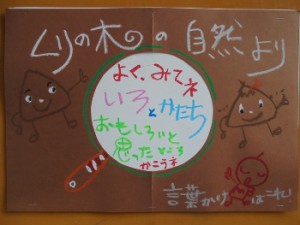 くりの木の自然より
よく、みてネ
いろ
と かたち
おもしろいと
思ったところ
かこうネ
言葉かけ はこれ!